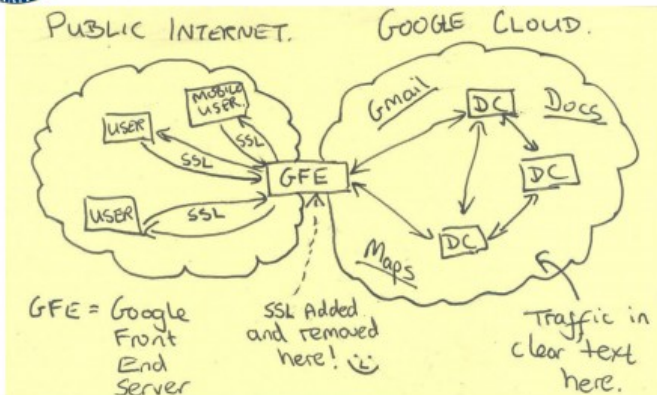 PUBLIC INTERNET.
GOOGLE CLOUD.
MOBILE
USER.
USER
SSL
SSL
SSL
USER
GFE
Gmail
DC
Docs
DC
DC
Maps
GFE = Google
Front
End
Server
SSL Added
and removed
here!
Traffic in
clear text
here.